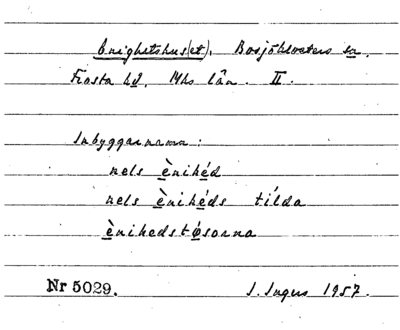 Enighetshus(et), Bosjöklosters sn.
Frosta hd. Mhs län. II.
Inbyggarnamn:
nels ènihéd
nels ènihéds tílda
ènihedstǿsorna
Nr 5029. I. Ingers 1957.